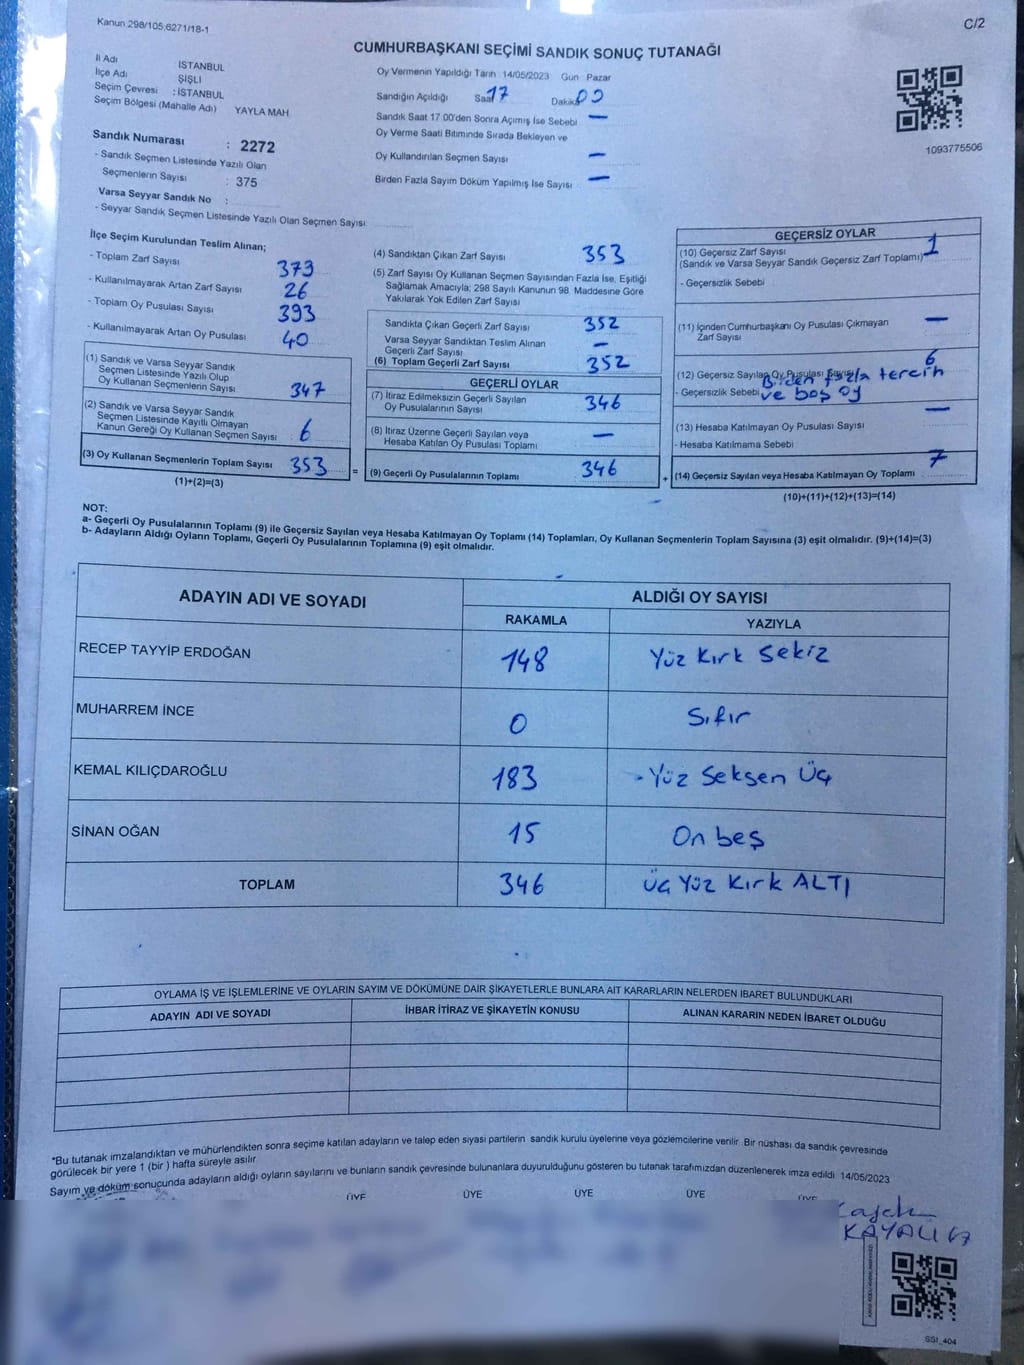 Kanun 298/105,6271/18-1
C/2
CUMHURBAŞKANI SEÇİMİ SANDIK SONUÇ TUTANAĞI
İl Adı İSTANBUL
İlçe Adı ŞİŞLİ
Seçim Çevresi : İSTANBUL
Seçim Bölgesi (Mahalle Adı) YAYLA MAH
Sandık Numarası : 2272
- Sandık Seçmen Listesinde Yazılı Olan
Seçmenlerin Sayısı : 375
Varsa Seyyar Sandık No :
- Seyyar Sandık Seçmen Listesinde Yazılı Olan Seçmen Sayısı
Oy Vermenin Yapıldığı Tarih 14/05/2023 Gün Pazar
Sandığın Açıldığı Saat 17 Dakika 00
Sandık Saat 17.00'den Sonra Açımış İse Sebebi —
Oy Verme Saati Bitiminde Sırada Bekleyen ve
Oy Kullandırılan Seçmen Sayısı —
Birden Fazla Sayım Döküm Yapılmış İse Sayısı —
1093775506
İlçe Seçim Kurulundan Teslim Alınan;
- Toplam Zarf Sayısı 373
- Kullanılmayarak Artan Zarf Sayısı 26
- Toplam Oy Pusulası Sayısı 393
- Kullanılmayarak Artan Oy Pusulası 40
(1) Sandık ve Varsa Seyyar Sandık
Seçmen Listesinde Yazılı Olup
Oy Kullanan Seçmenlerin Sayısı 347
(2) Sandık ve Varsa Seyyar Sandık
Seçmen Listesinde Kayıtlı Olmayan
Kanun Gereği Oy Kullanan Seçmen Sayısı 6
(3) Oy Kullanan Seçmenlerin Toplam Sayısı 353
(1)+(2)=(3)
(4) Sandıktan Çıkan Zarf Sayısı 353
(5) Zarf Sayısı Oy Kullanan Seçmen Sayısından Fazla İse, Eşitliği
Sağlamak Amacıyla; 298 Sayılı Kanunun 98. Maddesine Göre
Yakılarak Yok Edilen Zarf Sayısı
Sandıkta Çıkan Geçerli Zarf Sayısı 352
Varsa Seyyar Sandıktan Teslim Alınan —
Geçerli Zarf Sayısı
(6) Toplam Geçerli Zarf Sayısı 352
GEÇERLİ OYLAR
(7) İtiraz Edilmeksizin Geçerli Sayılan
Oy Pusulalarının Sayısı 346
(8) İtiraz Üzerine Geçerli Sayılan veya
Hesaba Katılan Oy Pusulası Toplamı —
= (9) Geçerli Oy Pusulalarının Toplamı 346
GEÇERSİZ OYLAR
(10) Geçersiz Zarf Sayısı 1
(Sandık ve Varsa Seyyar Sandık Geçersiz Zarf Toplamı)
- Geçersizlik Sebebi
(11) İçinden Cumhurbaşkanı Oy Pusulası Çıkmayan
Zarf Sayısı —
(12) Geçersiz Sayılan Oy Pusulası Sayısı 6
- Geçersizlik Sebebi Birden fazla tercih
ve boş oy
(13) Hesaba Katılmayan Oy Pusulası Sayısı —
- Hesaba Katılmama Sebebi
+ (14) Geçersiz Sayılan veya Hesaba Katılmayan Oy Toplamı 7
(10)+(11)+(12)+(13)=(14)
NOT:
a- Geçerli Oy Pusulalarının Toplamı (9) ile Geçersiz Sayılan veya Hesaba Katılmayan Oy Toplamı (14) Toplamları, Oy Kullanan Seçmenlerin Toplam Sayısına (3) eşit olmalıdır. (9)+(14)=(3)
b- Adayların Aldığı Oyların Toplamı, Geçerli Oy Pusulalarının Toplamına (9) eşit olmalıdır.
ADAYIN ADI VE SOYADI ALDIĞI OY SAYISI
RAKAMLA YAZIYLA
RECEP TAYYİP ERDOĞAN 148 Yüz Kırk Sekiz
MUHARREM İNCE 0 Sıfır
KEMAL KILIÇDAROĞLU 183 Yüz Seksen Üç
SİNAN OĞAN 15 On beş
TOPLAM 346 Üç Yüz Kırk ALTI
OYLAMA İŞ VE İŞLEMLERİNE VE OYLARIN SAYIM VE DÖKÜMÜNE DAİR ŞİKAYETLERLE BUNLARA AİT KARARLARIN NELERDEN İBARET BULUNDUKLARI
ADAYIN ADI VE SOYADI İHBAR İTİRAZ VE ŞİKAYETİN KONUSU ALINAN KARARIN NEDEN İBARET OLDUĞU
*Bu tutanak imzalandıktan ve mühürlendikten sonra seçime katılan adayların ve talep eden siyasi partilerin sandık kurulu üyelerine veya gözlemcilerine verilir. Bir nüshası da sandık çevresinde
görülecek bir yere 1 (bir) hafta süreyle asılır.
Sayım ve döküm sonucunda adayların aldığı oyların sayılarını ve bunların sandık çevresinde bulunanlara duyurulduğunu gösteren bu tutanak tarafımızdan düzenlenerek imza edildi 14/05/2023
ÜYE ÜYE ÜYE ÜYE ÜYE
SSI_404